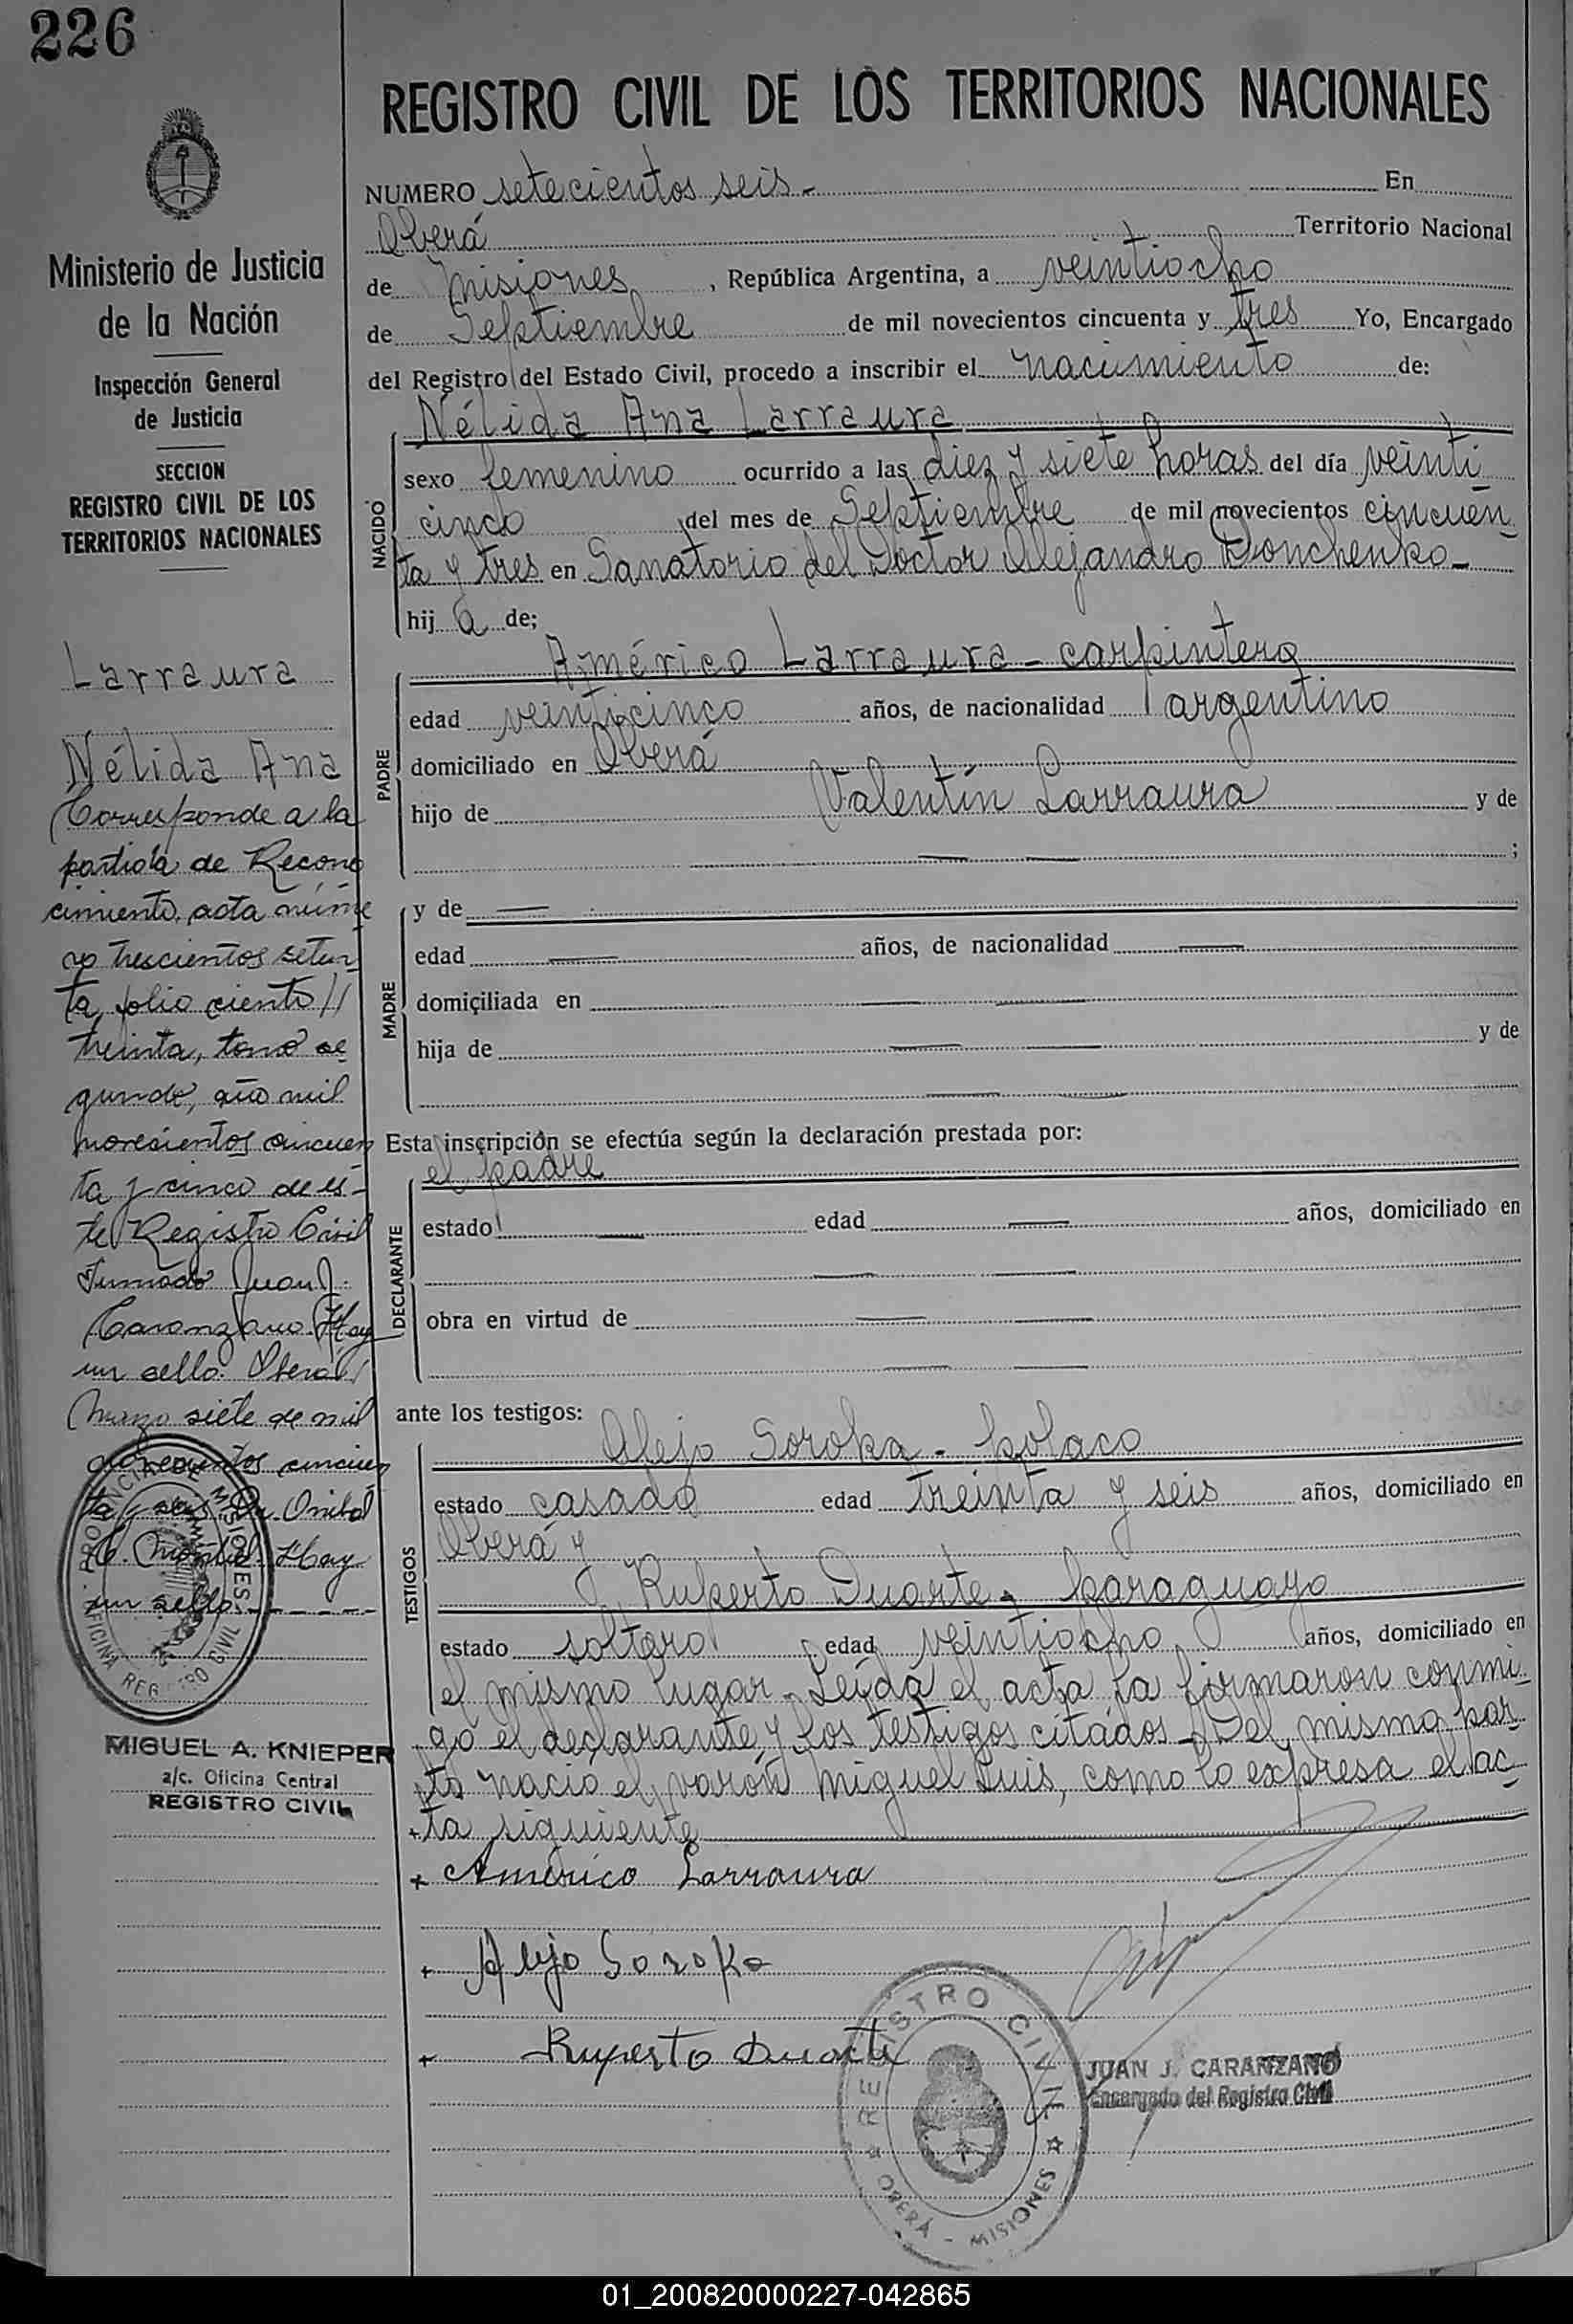 226
REGISTRO CIVIL DE LOS TERRITORIOS NACIONALES
Ministerio de Justicia
de la Nación
Inspección General
de Justicia
SECCION
REGISTRO CIVIL DE LOS
TERRITORIOS NACIONALES
Larraura
Nélida Ana
Corresponde a la
partida de Recono
cimiento, acta núme
ro trescientos seten
ta, folio ciento //
treinta, tomo se
gundo, año mil
novecientos cincuen
ta y cinco de es-
te Registro Civil
Firmado Juan J.
Caranzano. Hay
un sello. Oberá,
Marzo siete de mil
novecientos cincuen
ta y seis. Hay
un sello.-----
PROVINCIA DE MISIONES
OFICINA REGISTRO CIVIL
MIGUEL A. KNIEPER
a/c. Oficina Central
REGISTRO CIVIL
NUMERO setecientos seis.- En
Oberá Territorio Nacional
de Misiones, República Argentina, a veintiocho
de Septiembre de mil novecientos cincuenta y tres Yo, Encargado
del Registro del Estado Civil, procedo a inscribir el nacimiento de:
NACIDO
Nélida Ana Larraura
sexo femenino ocurrido a las diez y siete horas del día veinti
cinco del mes de Septiembre de mil novecientos cincuen
ta y tres en Sanatorio del Doctor Alejandro Donchenko-
hij a de;
PADRE
Américo Larraura - carpintero
edad veinticinco años, de nacionalidad argentino
domiciliado en Oberá
hijo de Valentín Larraura y de
— — ;
MADRE
y de —
edad — años, de nacionalidad —
domiciliada en — —
hija de — — y de
— —
Esta inscripción se efectúa según la declaración prestada por:
DECLARANTE
el padre
estado — edad — años, domiciliado en
— —
obra en virtud de — —
— —
ante los testigos:
TESTIGOS
Alejo Soroka - polaco
estado casado edad treinta y seis años, domiciliado en
Oberá y
Ruperto Duarte, paraguayo
estado soltero edad veintiocho años, domiciliado en
el mismo lugar. Leída el acta la firmaron conmi
go el declarante y los testigos citados. Del mismo par
to nació el varón Miguel Luis, como lo expresa el ac
ta siguiente
+ Américo Larraura
+ Alejo Soroka
+ Ruperto Duarte
REGISTRO CIVIL
OBERÁ - MISIONES
JUAN J. CARANZANO
Encargado del Registro Civil
01_200820000227-042865